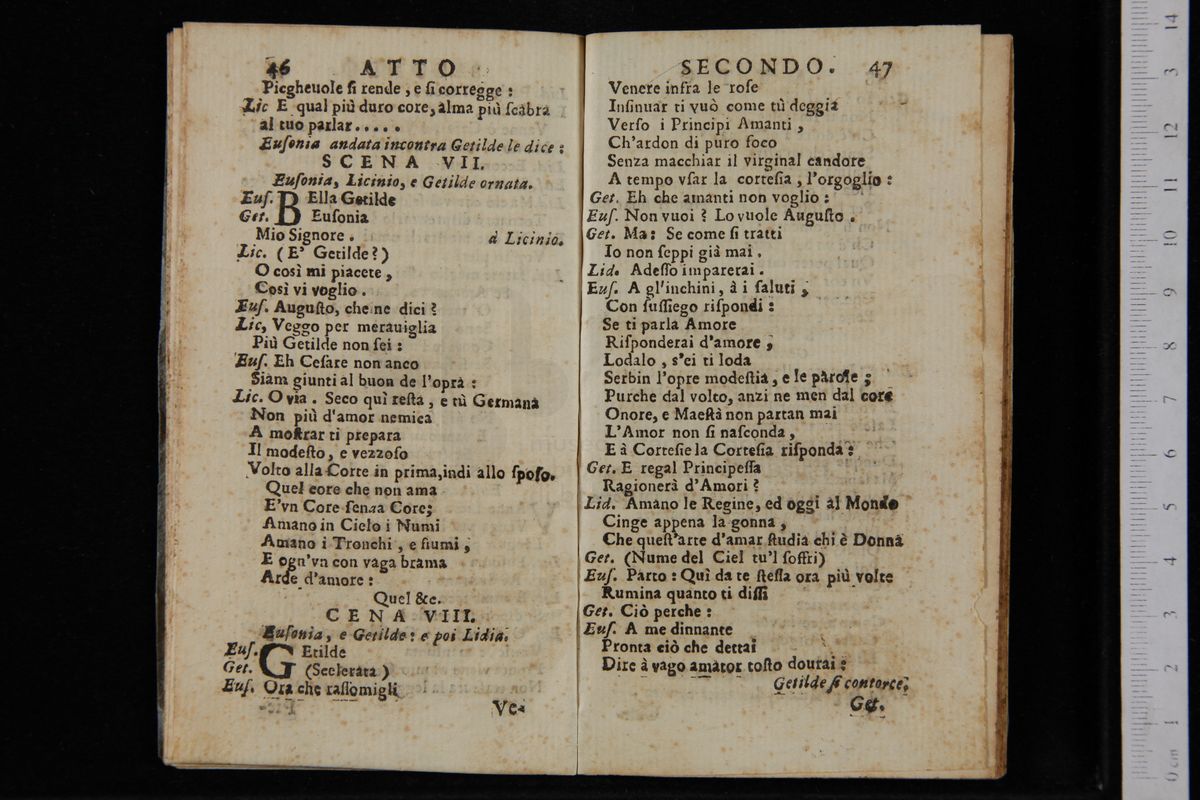 46 ATTO
Piegheuole ſi rende, e ſi corregge:
Lic E qual più duro core, alma più ſcabra
al tuo parlar.....
Euſonia andata incontra Getilde le dice:
SCENA VII.
Euſonia, Licinio, e Getilde ornata.
Euſ. BElla Getilde
Get. Euſonia
Mio Signore. à Licinio.
Lic. (E' Getilde?)
O così mi piacete,
Così vi voglio.
Euſ. Auguſto, che ne dici?
Lic, Veggo per merauiglia
Più Getilde non ſei:
Euſ. Eh Ceſare non anco
Siam giunti al buon de l'opra:
Lic. O via. Seco quì reſta, e tù Germana
Non più d'amor nemica
A moſtrar ti prepara
Il modeſto, e vezzoſo
Volto alla Corte in prima, indi allo ſpoſo.
Quel core che non ama
E'vn Core ſenza Core;
Amano in Cielo i Numi
Amano i Tronchi, e fiumi,
E ogn'vn con vaga brama
Arde d'amore:
Quel &c.
CENA VIII.
Euſonia, e Getilde: e poi Lidia.
Euſ. GEtilde
Get. (Scelerata)
Euſ. Ora che raſſomigli
Ve-
SECONDO. 47
Venere infra le roſe
Inſinuar ti vuò come tù deggia
Verſo i Principi Amanti,
Ch'ardon di puro foco
Senza macchiar il virginal candore
A tempo vſar la corteſia, l'orgoglio:
Get. Eh che amanti non voglio:
Euſ. Non vuoi? Lo vuole Auguſto.
Get. Ma: Se come ſi tratti
Io non ſeppi già mai.
Lid. Adeſſo imparerai.
Euſ. A gl'inchini, à i ſaluti,
Con ſuſſiego riſpondi:
Se ti parla Amore
Riſponderai d'amore,
Lodalo, s'ei ti loda
Serbin l'opre modeſtia, e le parole;
Purche dal volto, anzi ne men dal core
Onore, e Maeſtà non partan mai
L'Amor non ſi naſconda,
E à Corteſie la Corteſia riſponda:
Get. E regal Principeſſa
Ragionerà d'Amori?
Lid. Amano le Regine, ed oggi al Mondo
Cinge appena la gonna,
Che queſt'arte d'amar ſtudia chi è Donna
Get. (Nume del Ciel tu'l ſoffri)
Euſ. Parto: Quì da te ſteſſa ora più volte
Rumina quanto ti diſſi
Get. Ciò perche:
Euſ. A me dinnante
Pronta ciò che dettai
Dire à vago amator toſto dourai:
Getilde ſi contorce.
Get.